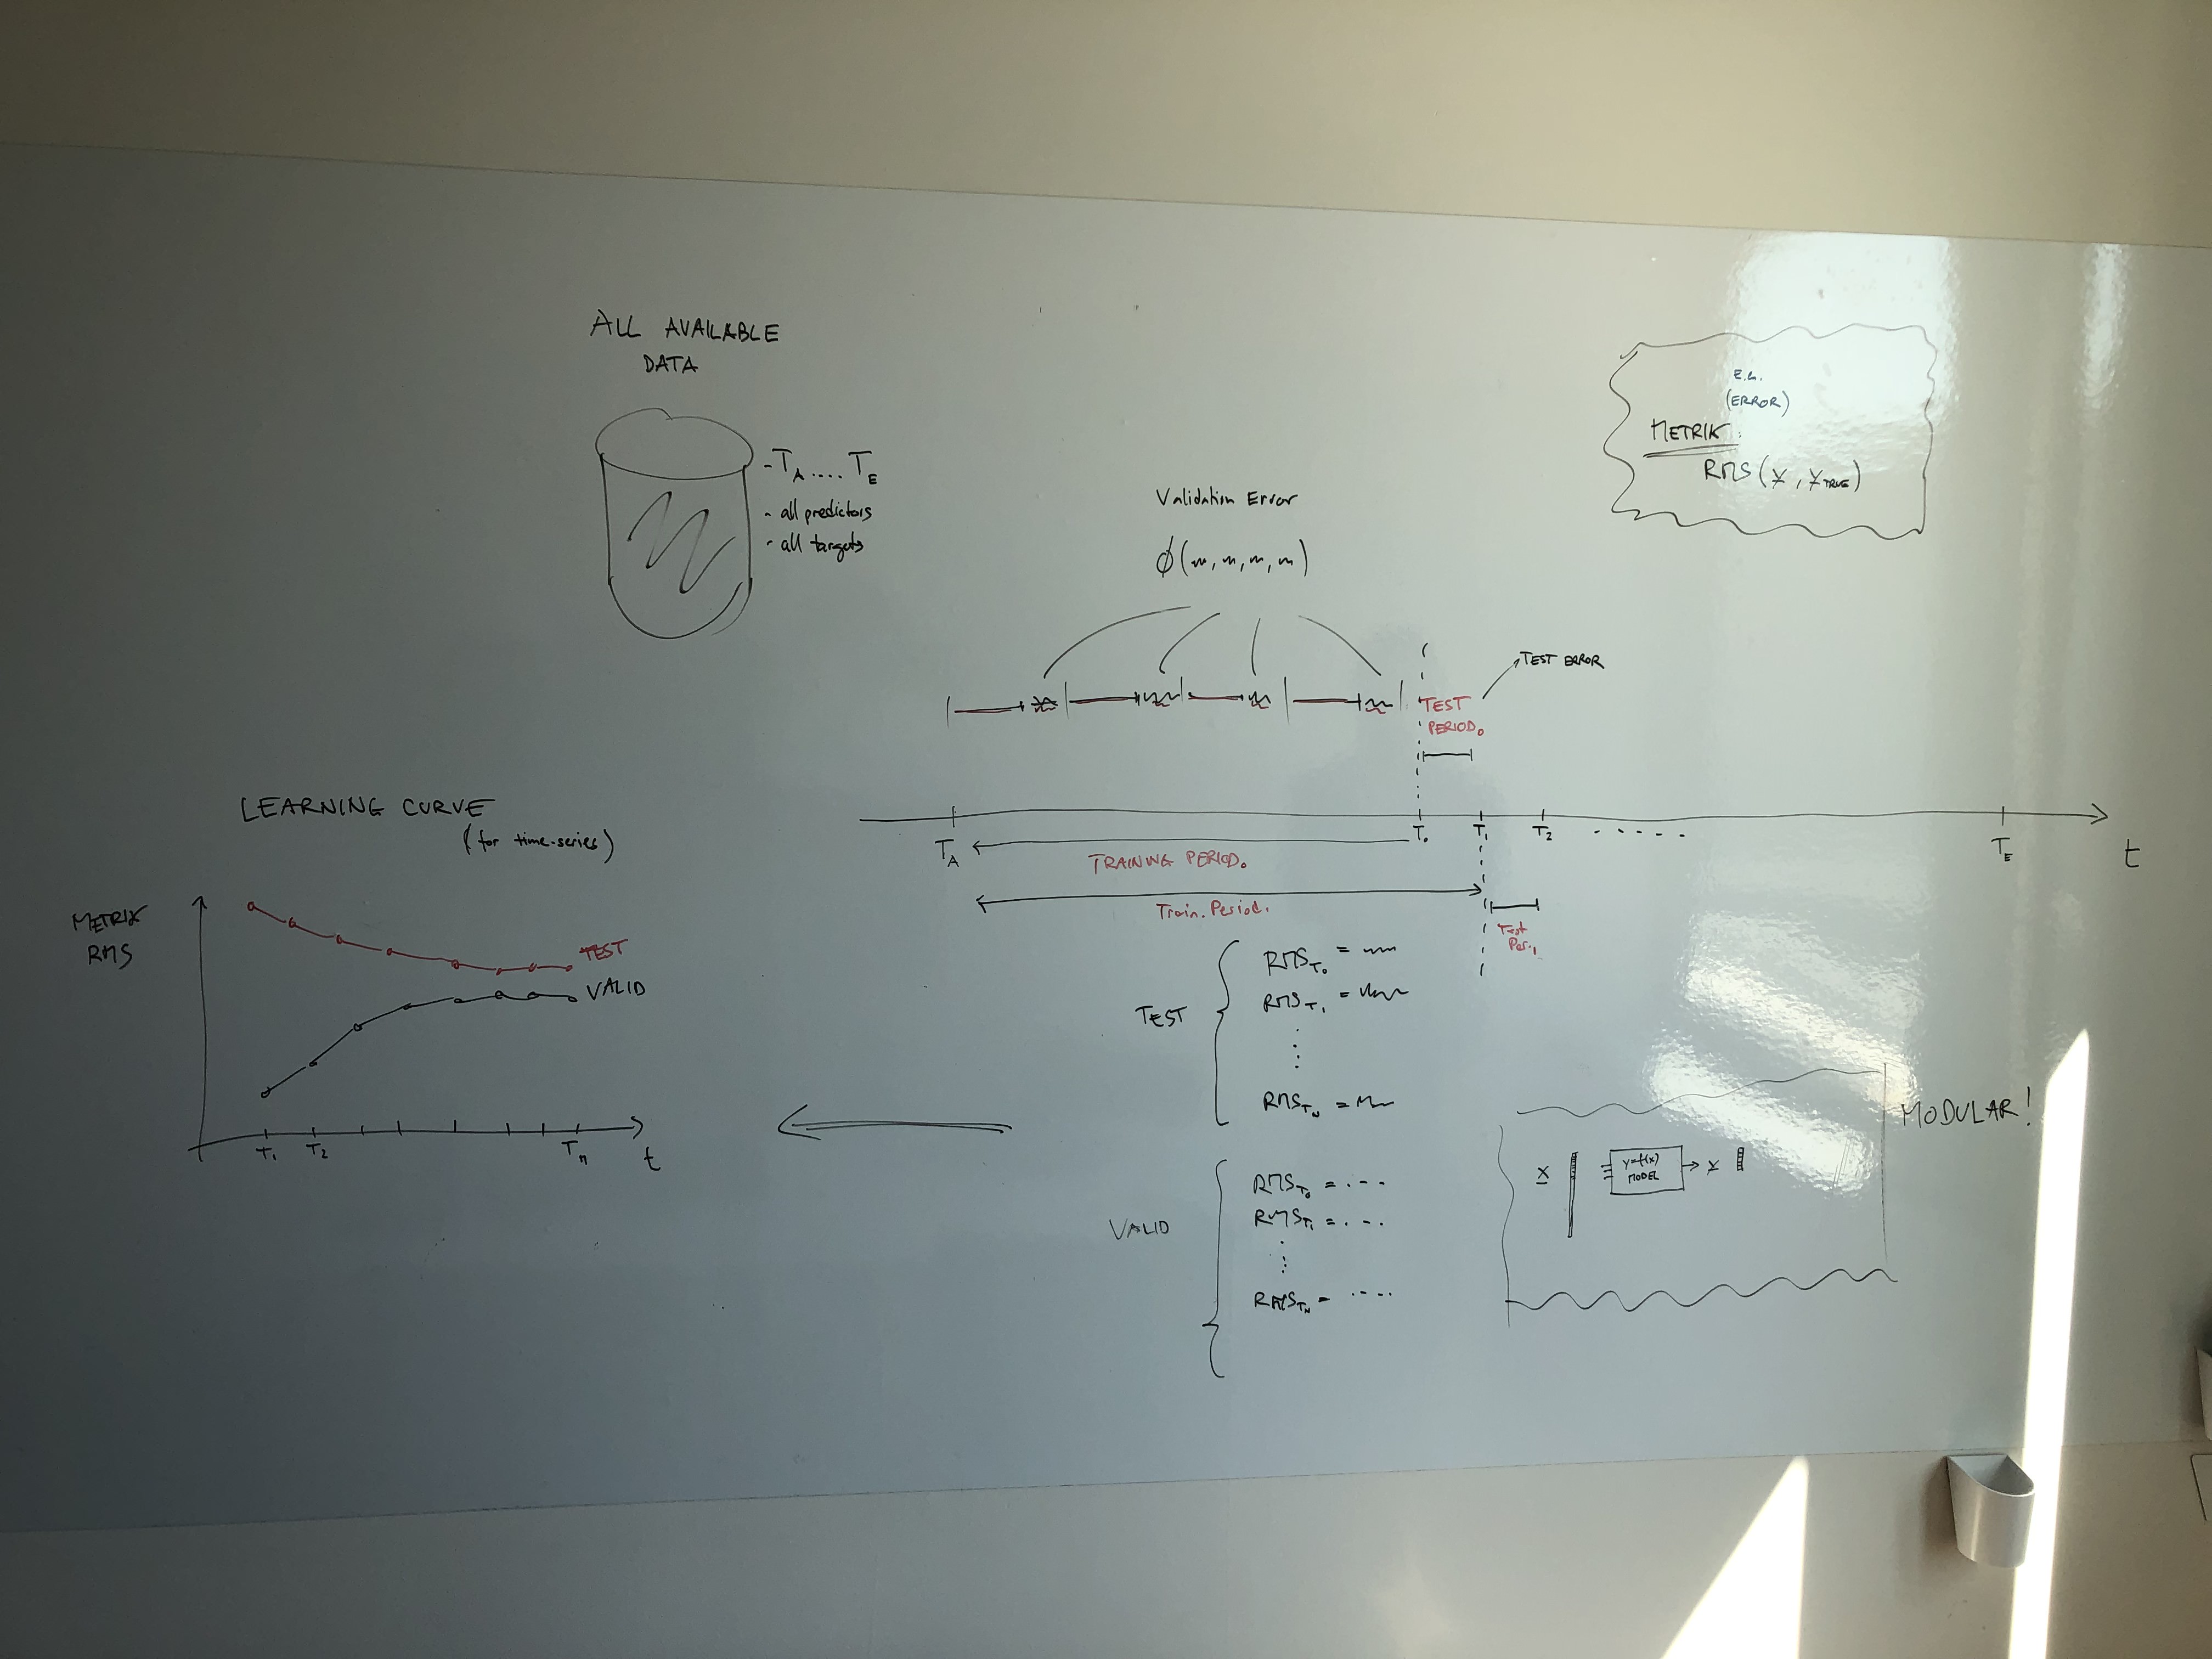 ALL AVAILABLE
DATA
- T_A .... T_E
- all predictors
- all targets
E.G.
(ERROR)
METRIK:
RMS (y, y_TRUE)
Validation Error
TEST ERROR
TEST
PERIOD 0
T_A
T_0
T_1
T_2
.....
T_E
t
TRAINING PERIOD 0
Train. Period 1
Test
Per. 1
LEARNING CURVE
(for time-series)
METRIK
RMS
TEST
VALID
T_1
T_2
T_n
t
TEST
RMS_T0 =
RMS_T1 =
RMS_TN =
VALID
RMS_T0 = ....
RMS_T1 = ....
RMS_TN = ....
MODULAR!
x
y=f(x)
MODEL
y